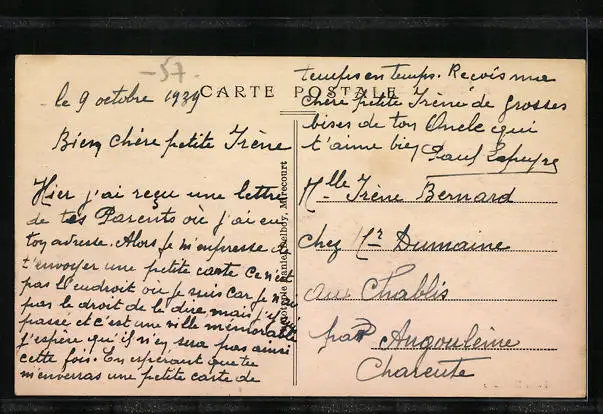 -57-
CARTE POSTALE
le 9 octobre 1939
Bien chère petite Irène
Hier j'ai reçu une lettre
de tes Parents où j'ai eu
ton adresse. Alors je m'empresse de
t'envoyer une petite carte Ce n'est
pas l'endroit où je suis car je n'ai
pas le droit de le dire mais j'y ai
passé et c'est une ville mémorable
j'espère qu'il n'en sera pas ainsi
cette fois. En espérant que tu
m'enverras une petite carte de
temps en temps. Reçois ma
chère petite Irène de grosses
bises de ton Oncle qui
t'aime bien Paul
Mlle Irène Bernard
chez Mr Dumaine
aux Chablis
par Angoulème
Charente
Daniel Delboy, Mirecourt